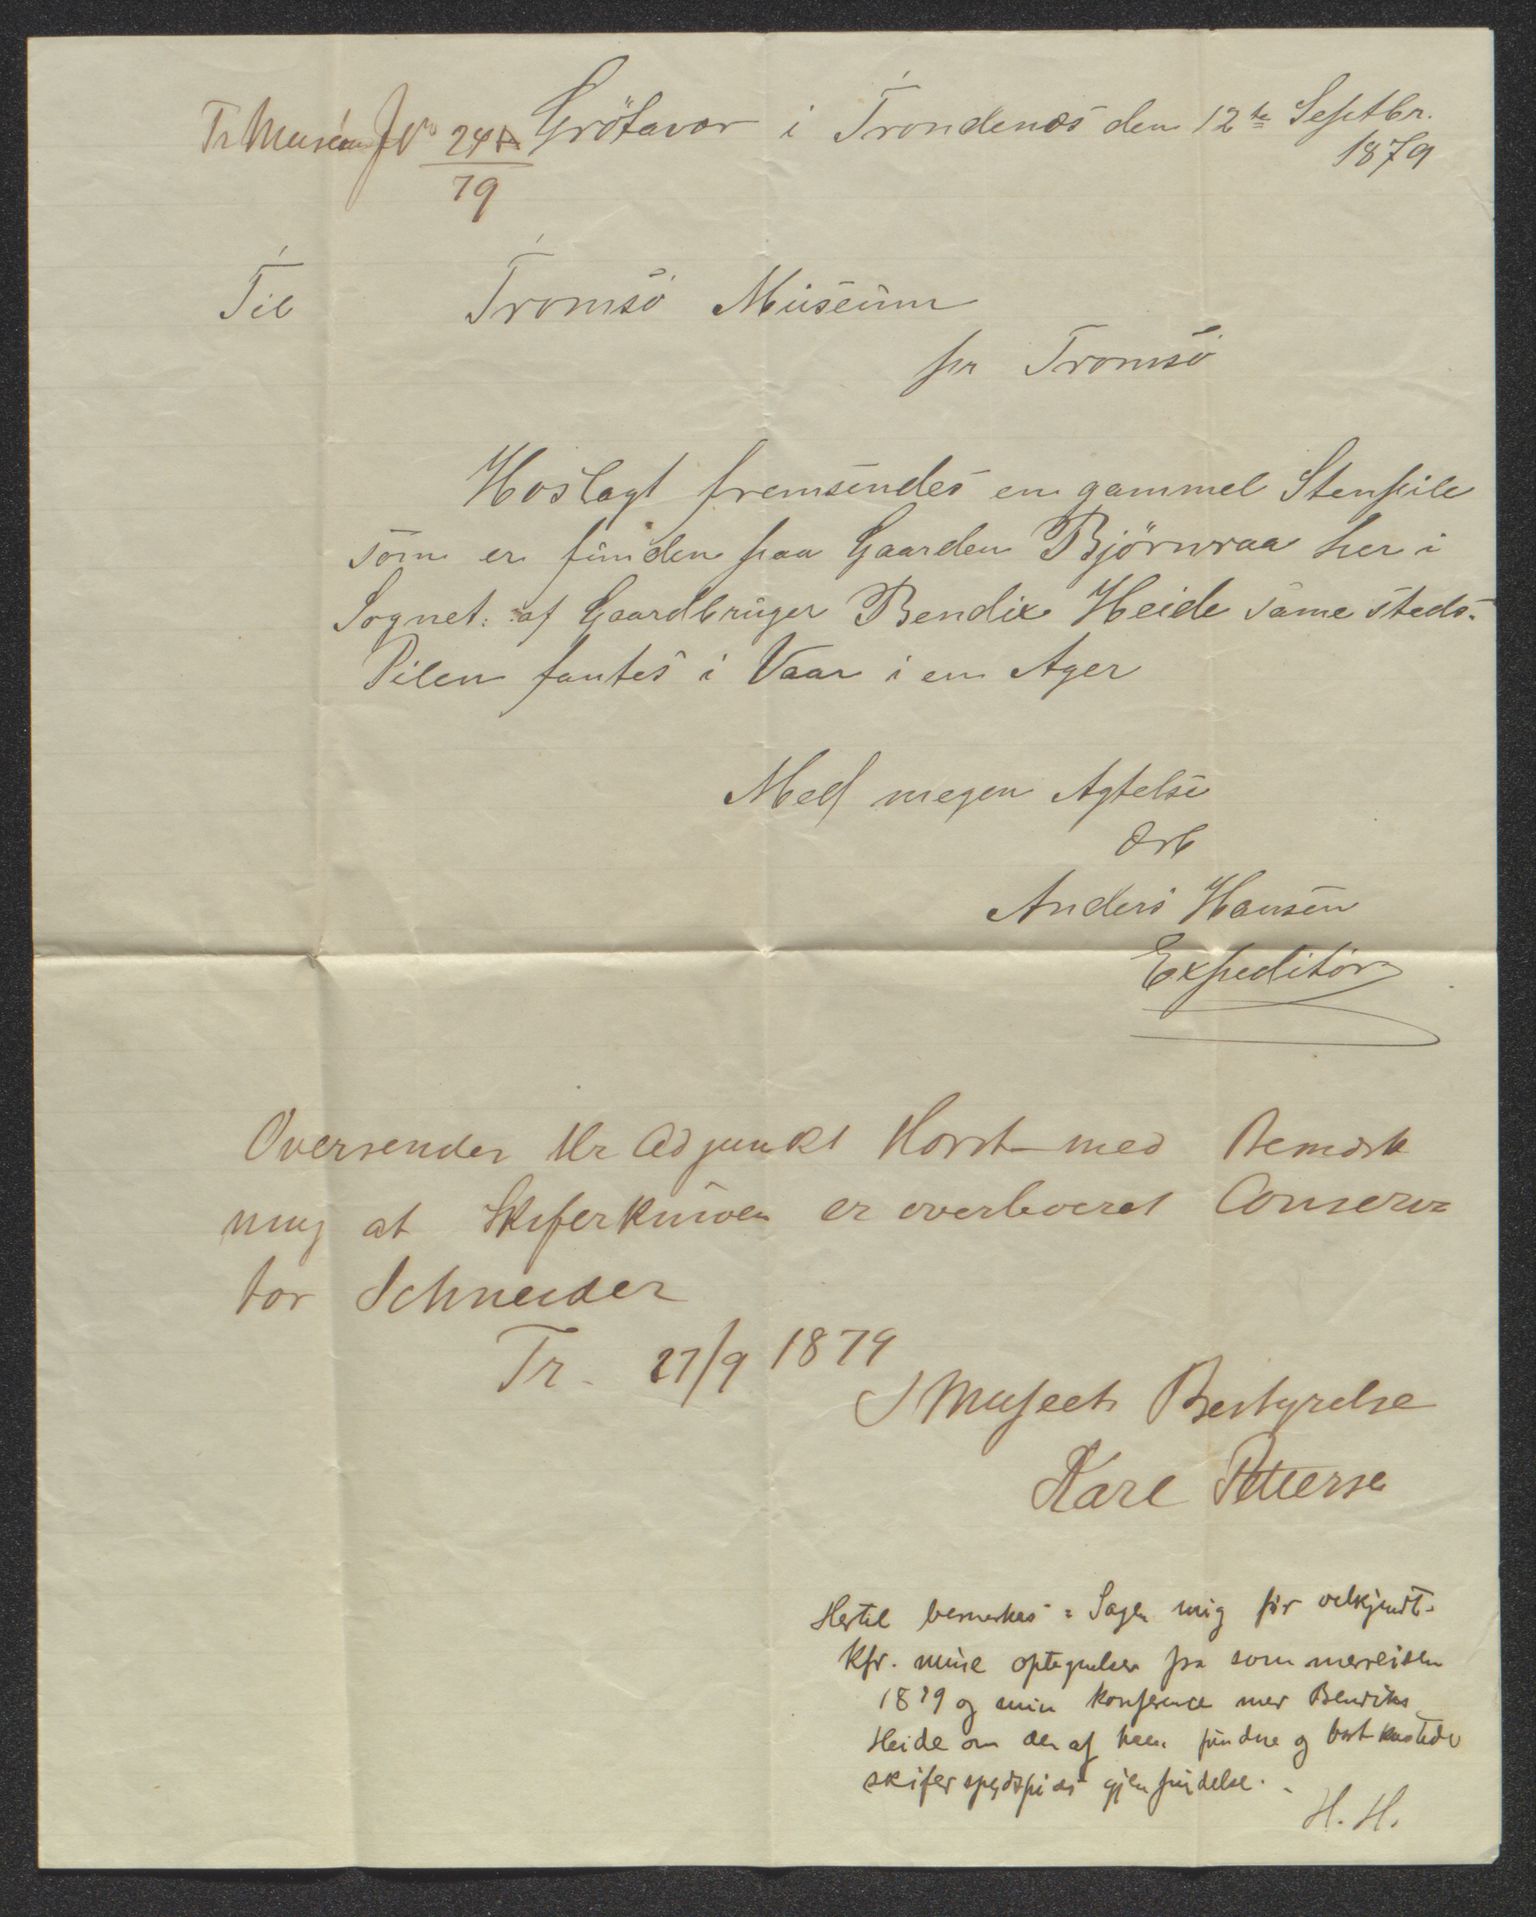 Tr Museum J No 241/79
Grötavær i Trondenæs den 12te Septbr.
1879
Til Tromsö Museum
pr Tromsö
Hoslagt fremsendes en gammel Stenpile
som er funden paa Gaarden Bjørnraa her i
Sognet: af Gaardbruger Bendix Heide samesteds.
Pilen fantes i Vaar i en Ager
Med megen Agtelse
Ærb
Anders Hansen
Expeditör
Oversendes Hr Adjunkt Horst med Bemærk
ning at Skiferkniven er overleveret Conserva=
tor Schneider
Tr. 27/9 1879
I Museets Bestyrelse
Karl Pettersen
Hertil bemerkes: Sagen mig før velkjendt.
Kfr. mine optegnelser fra sommerreisen
1879 og min konference med Bendiks
Heide om den af ham fundne og bortkastede
skiferspydspids gjenfindelse. -
H. H.